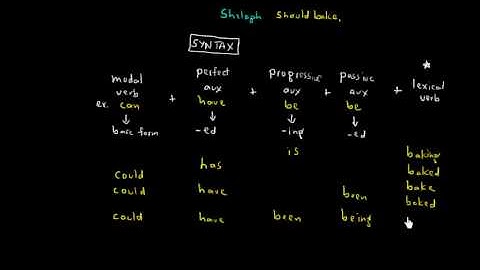 Shilagh should bake.
SYNTAX
modal verb + perfect aux + progressive aux + passive aux + * lexical verb
ex. can have be be
↓ ↓ ↓ ↓
bare form -ed -ing -ed
is baking
has baked
could bake
could have been baked
could have been being